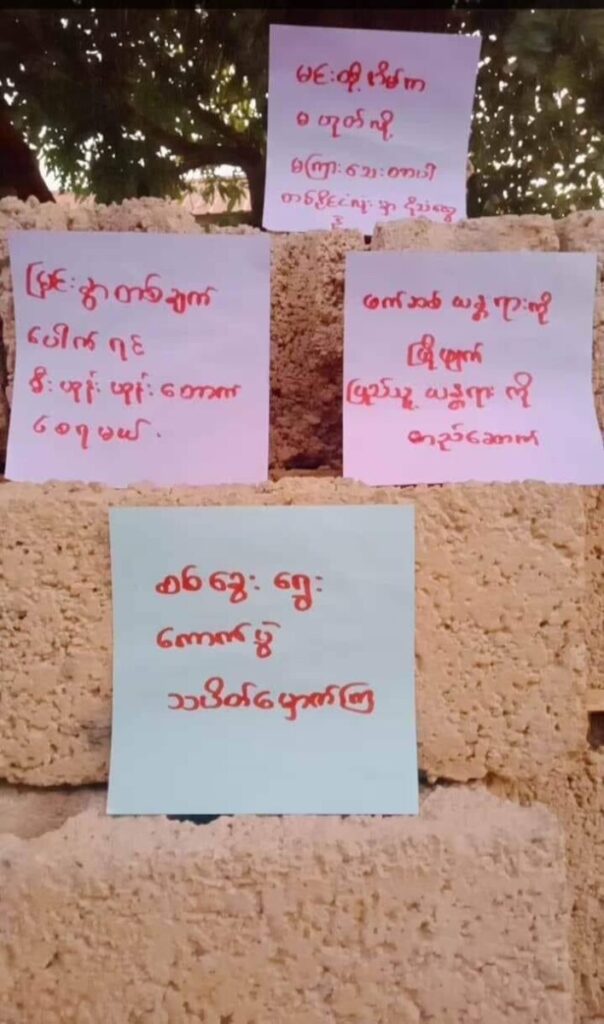 မင်းတို့အိမ်က
မဟုတ်လို့
မကြားသေးတာပါ
တစ်နိုင်ငံလုံးမှာ ငိုသံတွေ
နဲ့
မြှင်းခွာတစ်ချက်
ပေါက်ရင်
မီးဟုန်းဟုန်းတောက်
စေရမယ်.
ဖက်ဆစ် ယန္တရားကို
ဖြိုဖျက်
ပြည်သူ့ ယန္တရား ကို
တည်ဆောက်
စစ်ခွေး ရွေး
ကောက်ပွဲ
သပိတ်မှောက်ကြ